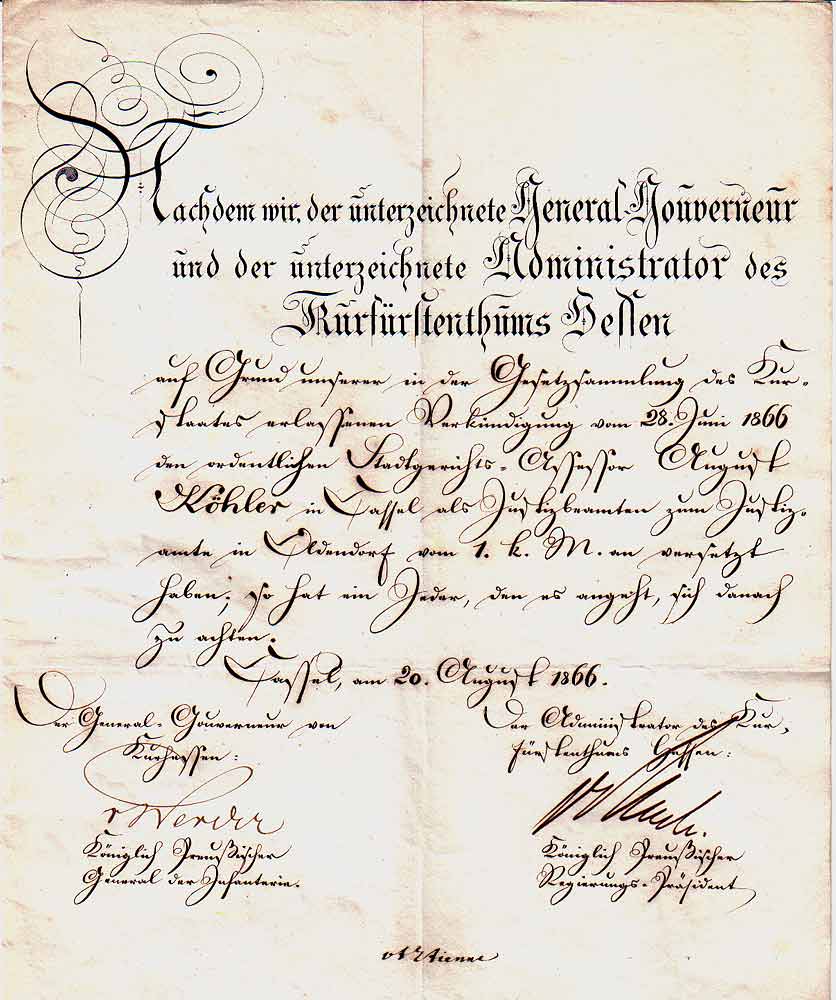 Nachdem wir, der unterzeichnete General-Gouverneur
und der unterzeichnete Administrator des
Kurfürstenthums Hessen
auf Grund unserer in der Gesetzsammlung des Kur-
staates erlassenen Verkündigung vom 28. Juni 1866
den ordentlichen Stadtgerichts-Assessor August
Köhler in Cassel als Justizbeamten zum Justiz-
amte in Oldendorf vom 1. k. M. an versetzt
haben; so hat ein Jeder, den es angeht, sich danach
zu achten.
Cassel, am 20. August 1866.
Der General-Gouverneur von
Kurhessen:
v Werder
Königlich Preußischer
General der Infanterie.
Der Administrator des Kur-
fürstenthums Hessen:
Königlich Preußischer
Regierungs-Präsident